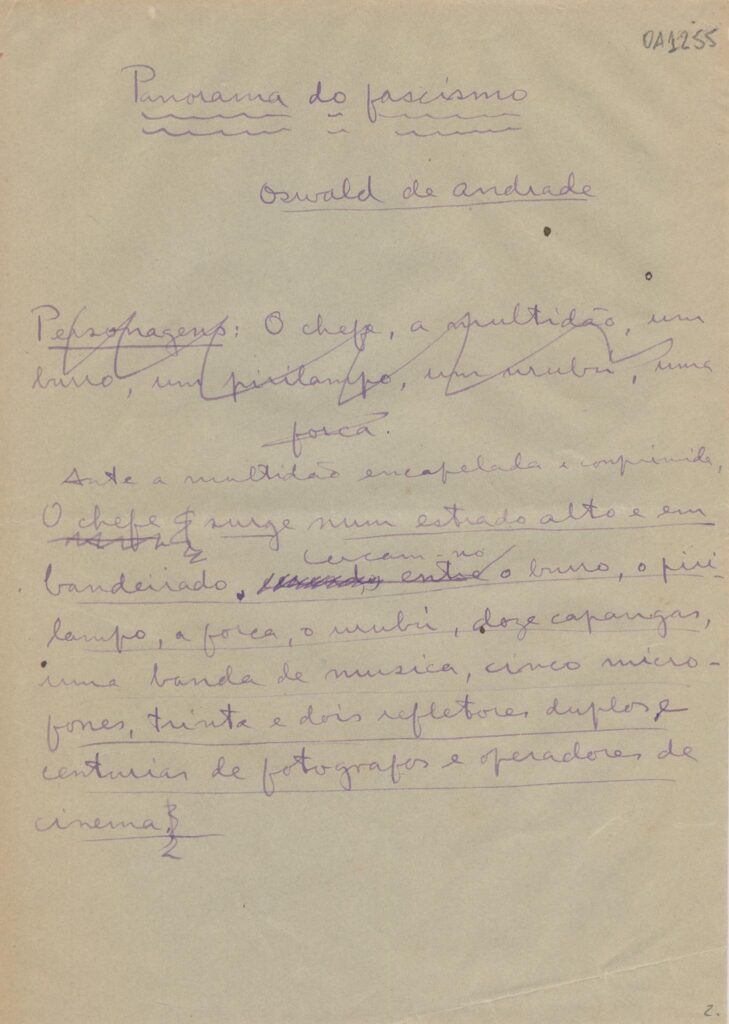 OA1255
Panorama do fascismo
Oswald de andrade
Personagens: O chefe, a multidão, um
burro, um pirilampo, um urubú, uma
forca.
Ante a multidão encapelada e comprimida,
O chefe surge num estrado alto e em
cercam-no
bandeirado, entre o burro, o piri-
lampo, a forca, o urubú, doze capangas,
uma banda de musica, cinco micro-
fones, trinta e dois refletores duplos e
centurias de fotografos e operadores de
cinema.
2.